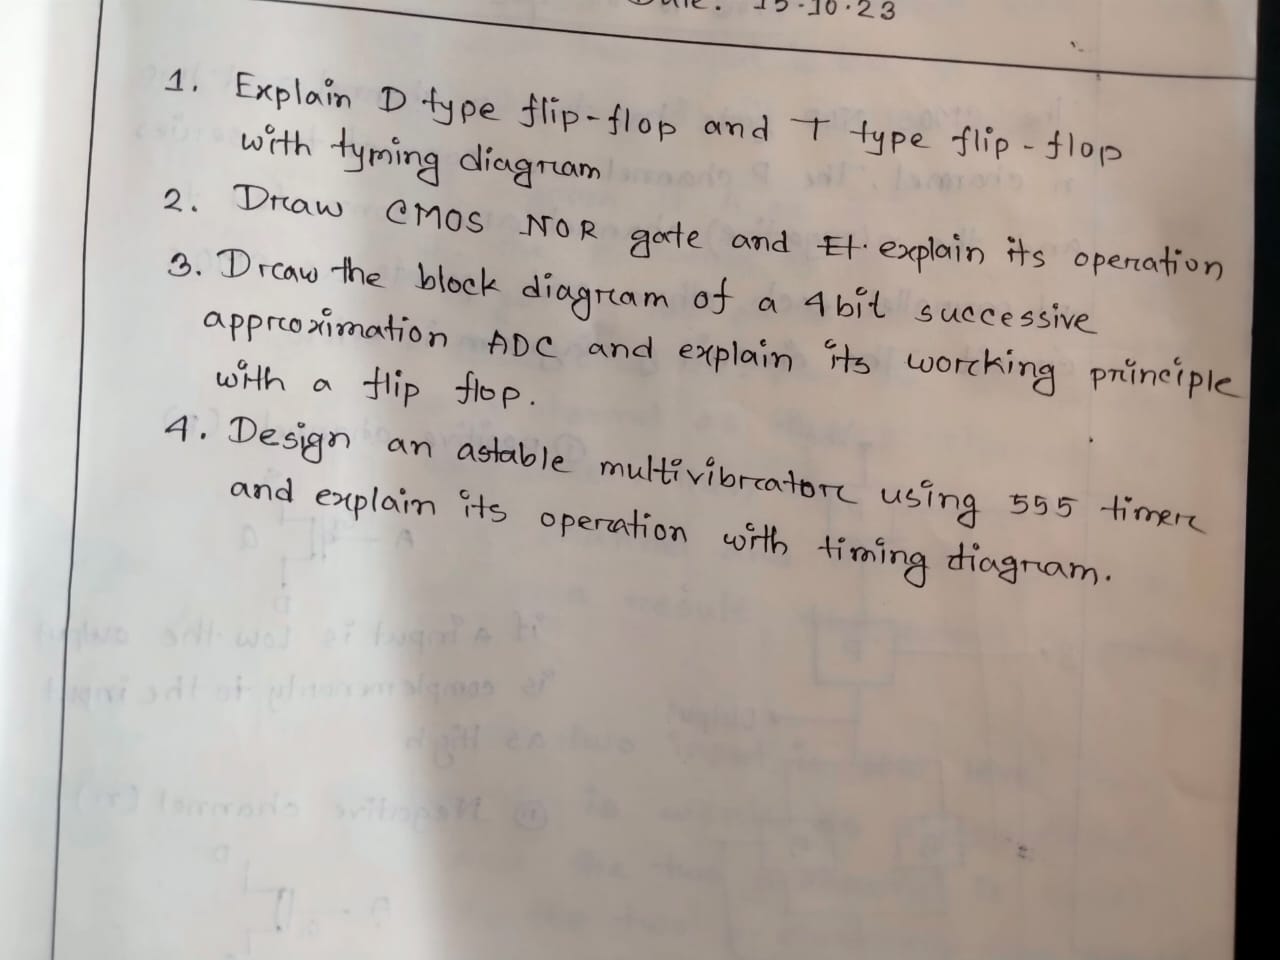 Date: 15.10.23
1. Explain D type flip-flop and T type flip-flop
with tyming diagram
2. Draw CMOS NOR gate and explain its operation
3. Draw the block diagram of a 4bit successive
approximation ADC and explain its working principle
with a flip flop.
4. Design an astable multivibrator using 555 timer
and explain its operation with timing diagram.